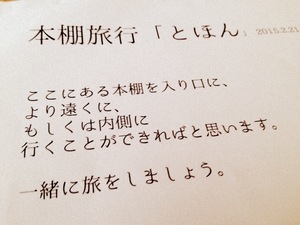 本棚旅行「とほん」2015.2.21
ここにある本棚を入り口に、
より遠くに、
もしくは内側に
行くことができればと思います。
一緒に旅をしましょう。